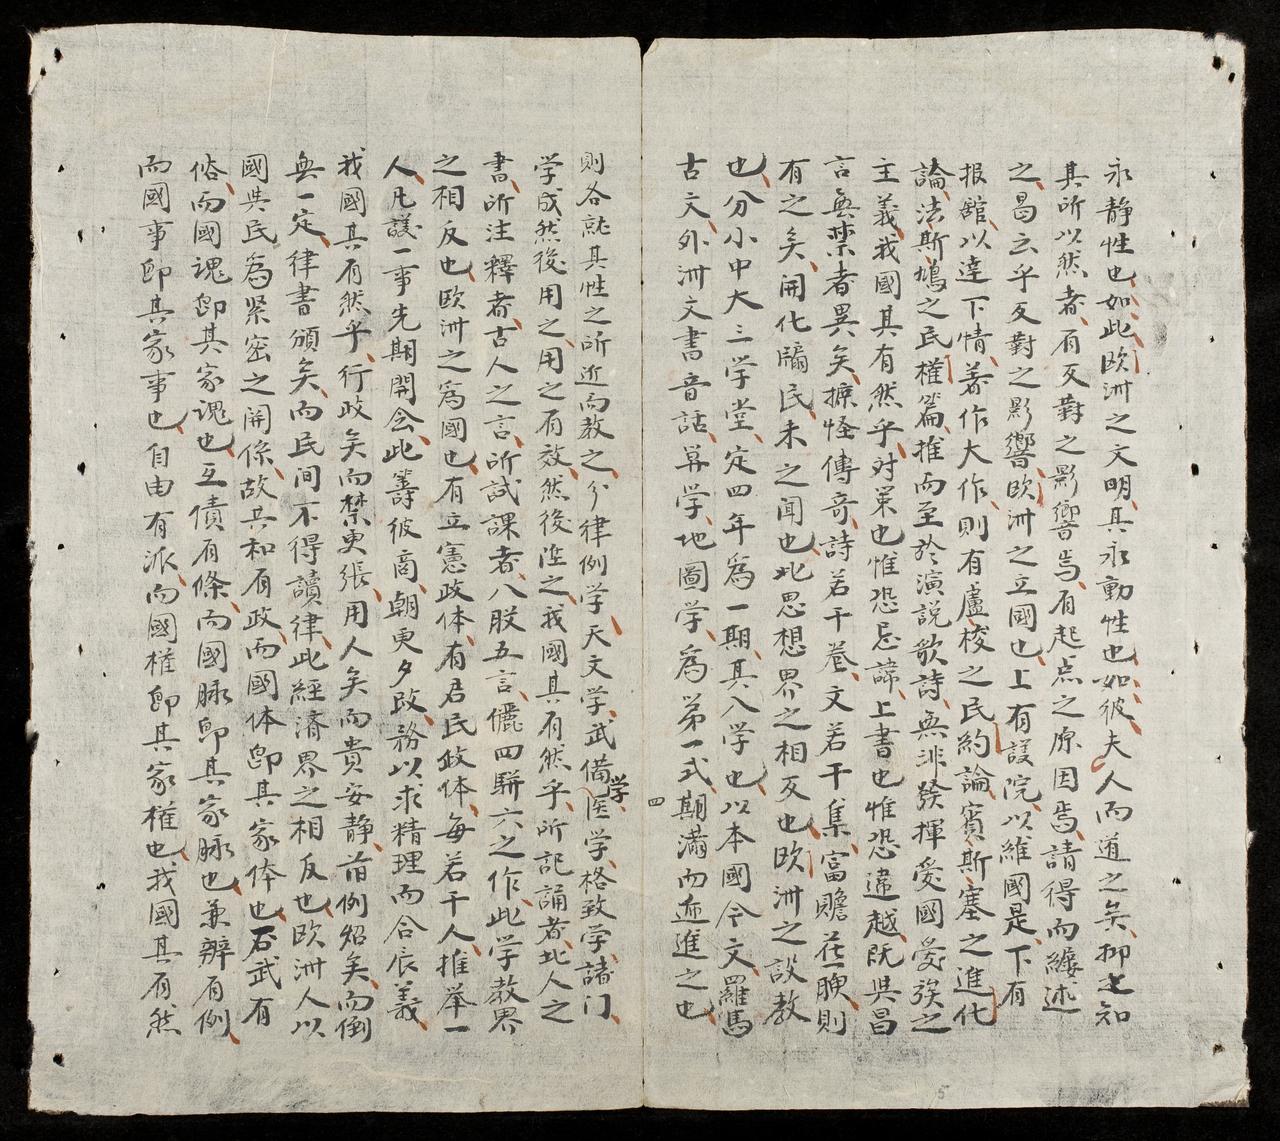 永静性也如此欧洲之文明其永動性也如彼夫人而道之矣抑亦知
其所以然者有反對之影響焉有起点之原因焉請得而縷述
之曷云乎反對之影響欧洲之立國也上有議院以維國是下有
报舘以達下情著作大作則有盧梭之民約論賓斯塞之進化
論法斯鳩之民權篇推而至於演説歌詩無非發揮愛國愛族之
主義我國其有然乎対策也惟恐忌諱上書也惟恐違越既與昌
言無禁者異矣摭怪傳奇詩若干卷文若干集富贍花腴則
有之矣開化牖民未之聞也此思想界之相反也欧洲之設教
也分小中大三学堂定四年為一期其入学也以本國今文羅馬
古文外洲文書音話算学地圖学為第一式期滿而逓進之也
四
則各就其性之所近而教之分律例学天文学武備学医学格致学諸门
学成然後用之用之有效然後陞之我國其有然乎所記誦者北人之
書所注釋者古人之言所試課者八股五言儷四駢六之作此学教界
之相反也欧洲之為國也有立憲政体有君民政体每若干人推举一
人凡議一事先期開会此籌彼商朝更夕改務以求精理而合辰義
我國其有然乎行政矣而禁更張用人矣而貴安静前例炤矣而倒
無一定律書頒矣而民间不得讀律此經済界之相反也欧洲人以
國與民為緊密之関係故共和有政而國体即其家体也召武有
俗而國魂即其家魂也互債有條而國脉即其家脉也兼辨有例
而國事即其家事也自由有派而國權即其家權也我國其有然
5